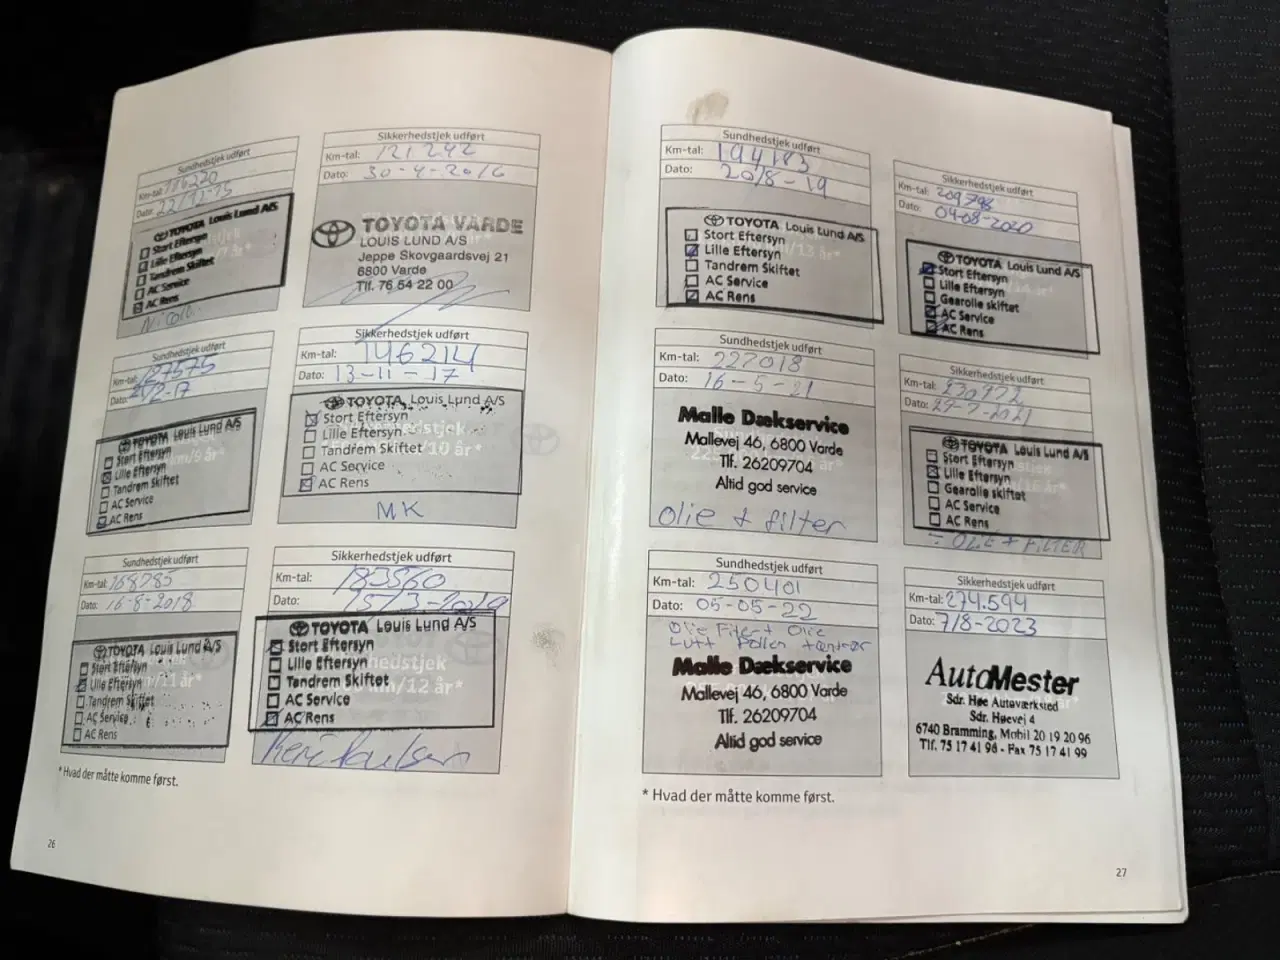 Sundhedstjek udført
Km-tal:
Dato: 22/12-15
TOYOTA Louis Lund A/S
Stort Eftersyn
Lille Eftersyn
Tandrem Skiftet
AC Service
AC Rens
Sikkerhedstjek udført
Km-tal: 121242
Dato: 30-4-2016
TOYOTA VARDE
LOUIS LUND A/S
Jeppe Skovgaardsvej 21
6800 Varde
Tlf. 76 54 22 00
Sundhedstjek udført
Km-tal: 127575
Dato:
TOYOTA Louis Lund A/S
Stort Eftersyn
Lille Eftersyn
Tandrem Skiftet
AC Service
AC Rens
Sikkerhedstjek udført
Km-tal: 146214
Dato: 13-11-17
TOYOTA Louis Lund A/S
Stort Eftersyn
Lille Eftersyn
Tandrem Skiftet
AC Service
AC Rens
MK
Sundhedstjek udført
Km-tal: 168785
Dato: 16-8-2018
TOYOTA Louis Lund A/S
Stort Eftersyn
Lille Eftersyn
Tandrem Skiftet
AC Service
AC Rens
Sikkerhedstjek udført
Km-tal: 183560
Dato: 15/3-2019
TOYOTA Louis Lund A/S
Stort Eftersyn
Lille Eftersyn
Tandrem Skiftet
AC Service
AC Rens
* Hvad der måtte komme først.
26
Sundhedstjek udført
Km-tal: 194183
Dato: 20/8-19
TOYOTA Louis Lund A/S
Stort Eftersyn
Lille Eftersyn
Tandrem Skiftet
AC Service
AC Rens
Sikkerhedstjek udført
Km-tal: 209798
Dato: 04-08-2020
TOYOTA Louis Lund A/S
Stort Eftersyn
Lille Eftersyn
Gearolie skiftet
AC Service
AC Rens
Sundhedstjek udført
Km-tal: 227018
Dato: 16-5-21
Malle Dækservice
Mallevej 46, 6800 Varde
Tlf. 26209704
Altid god service
olie + filter
Sikkerhedstjek udført
Km-tal: 230972
Dato: 29-7-2021
TOYOTA Louis Lund A/S
Stort Eftersyn
Lille Eftersyn
Gearolie skiftet
AC Service
AC Rens
- OLIE + FILTER
Sundhedstjek udført
Km-tal: 250401
Dato: 05-05-22
Olie Filter Olie
Luft Pollen tændrør
Malle Dækservice
Mallevej 46, 6800 Varde
Tlf. 26209704
Altid god service
Sikkerhedstjek udført
Km-tal: 274.594
Dato: 7/8-2023
AutoMester
Sdr. Høe Autoværksted
Sdr. Høevej 4
6740 Bramming, Mobil 20 19 20 96
Tlf. 75 17 41 98 - Fax 75 17 41 99
* Hvad der måtte komme først.
27